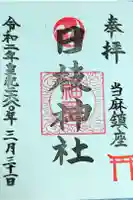 奉拝
当麻鎮座
日枝神社
令和二年皇紀二六八〇年二月二十一日